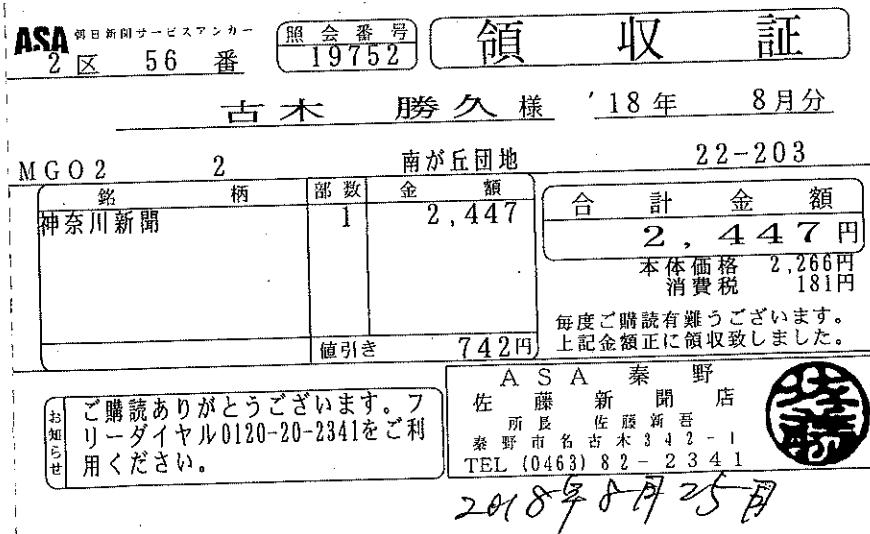 ASA 朝日新聞サービスアンカー
2区 56番
照会番号
19752
領収証
古木 勝久 様 '18年 8月分
MGO2 2 南が丘団地 22-203
銘柄 部数 金額
神奈川新聞 1 2,447
値引き 742円
合計金額
2,447円
本体価格 2,266円
消費税 181円
毎度ご購読有難うございます。
上記金額正に領収致しました。
お知らせ
ご購読ありがとうございます。フ
リーダイヤル0120-20-2341をご利
用ください。
ASA秦野
佐藤新聞店
所長 佐藤新吾
秦野市名古木342-1
TEL (0463) 82-2341
佐藤
2018年8月25日